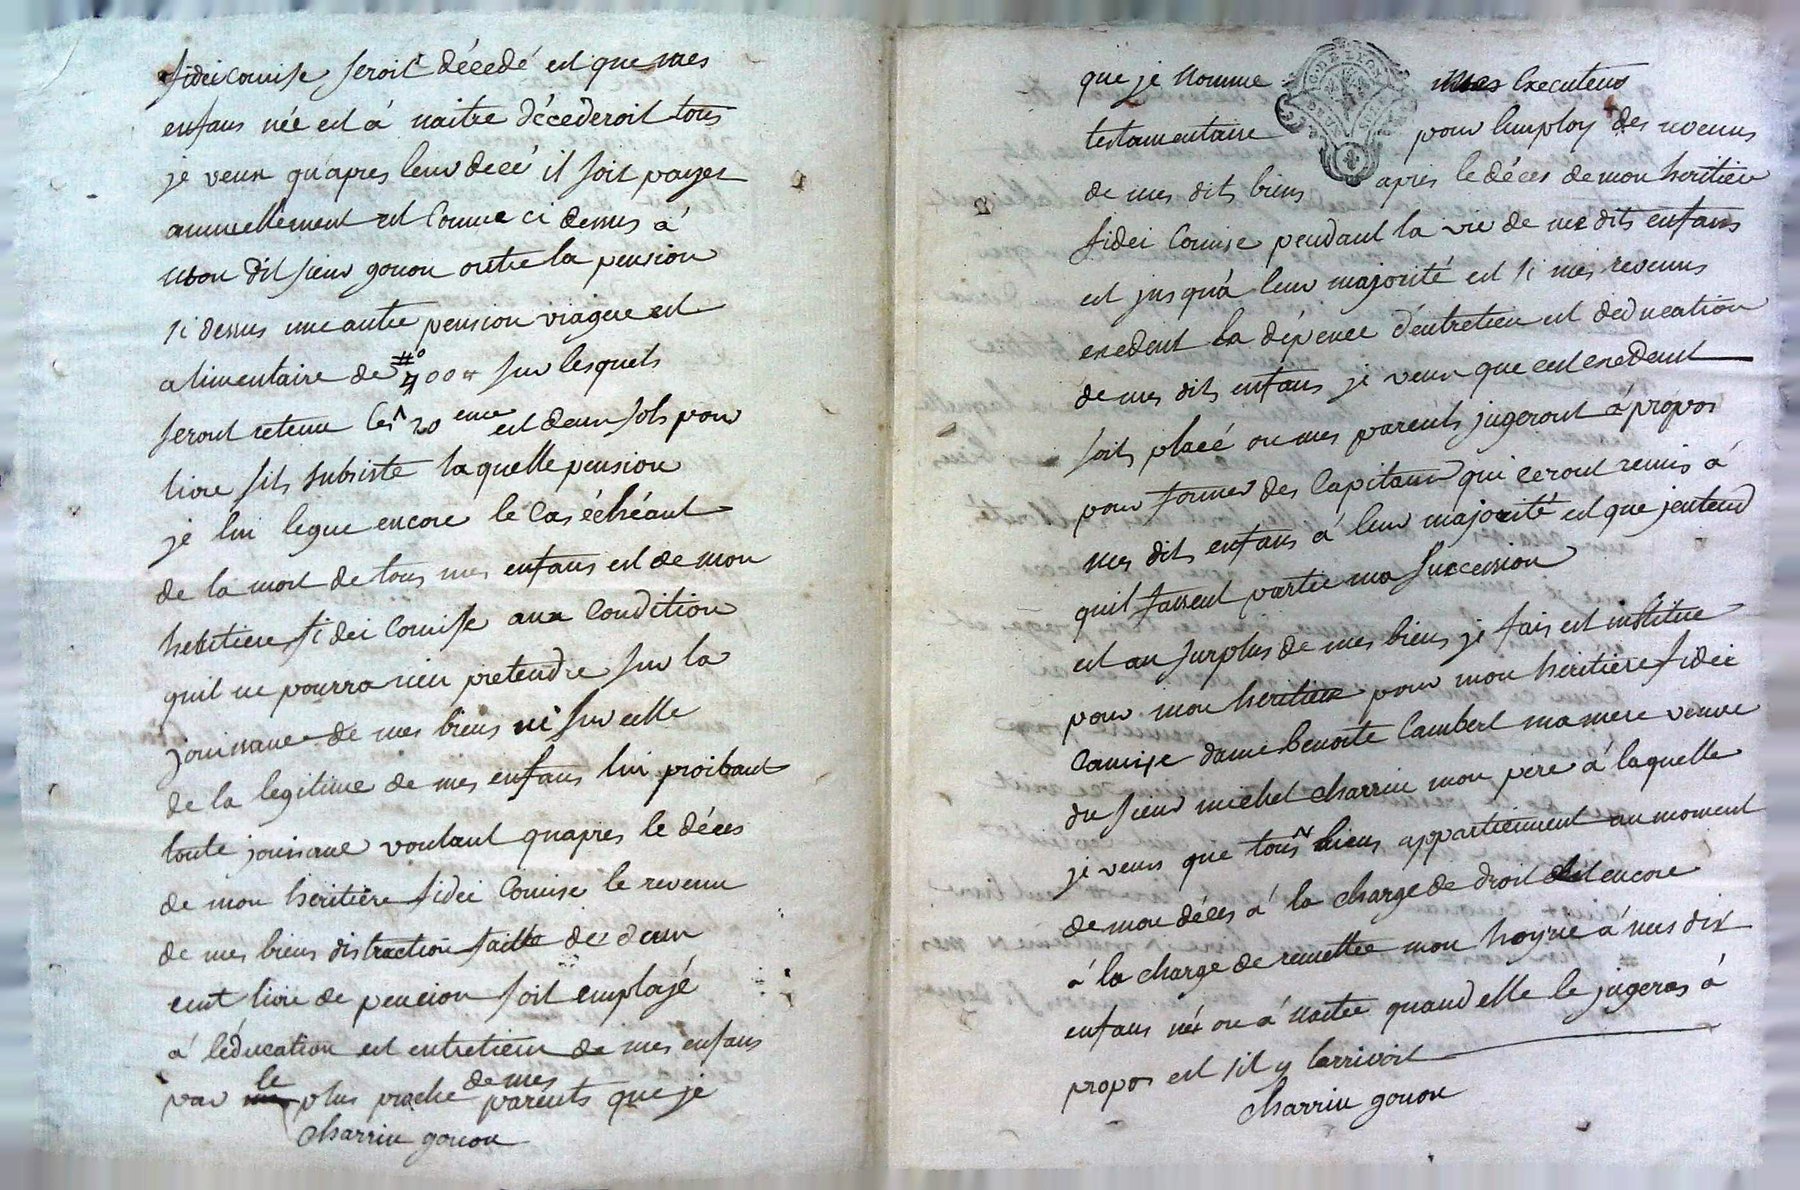 fideicomise seroit décedé est que mes
enfans née est á naitre décéderoit tous
je veux qu'apres leur decé il soit payer
annuellement est comme ci dessus á
mon dit sieur gonon outre la pension
si dessus une autre pension viagere est
alimentaire de 400# sur lesquels
seront retenu les 20 eme est deux sols pour
livre sils subsiste laquelle pension
je lui legue encore le cas écheant
de la mort de tous mes enfans est de mon
heritiere fidei comise aux condition
quil ne pourra rien pretendre sur la
jouissance de mes biens ni sur celle
de la legitime de mes enfans lui proibant
toute jouissance voulant quapres le déces
de mon héritiere fidei comise le revenu
de mes biens distraction faitte des deux
cent livre de pencion soit emploié
á léducation est entretien de mes enfans
par le plus proche de mes parents que je
charrin gonon
que je nomme mes Executeurs
testamentaire pour lemploy des revenus
de mes dit biens apres le déces de mon heritiere
fidei Comise pendant la vie de mes dits enfans
est jusquá leur majorité est si mes revenus
exedent la dépence déntretien est déducation
de mes dits enfans je veux que cest exedent
soit placé ou mes parents jugeront á propos
pour former des Capitaux qui ceront remis á
mes dits enfans á leur majorité est que jentend
quil fassent partie ma succession
est au surplus de mes biens je fais est institue
pour mon heritiere pour mon héritiere fidei
Comise dame benoite Lambert ma mere veuve
du sieur michel charrin mon pere á laquelle
je veux que tous biens appartiennent au moment
de mon déces á la charge de droit est encore
á la charge de remettre mon hoyrie á mes dix
enfans nés ou á naitre quand elle le jugeras á
propos est sil y larrivoit
charrin gonon